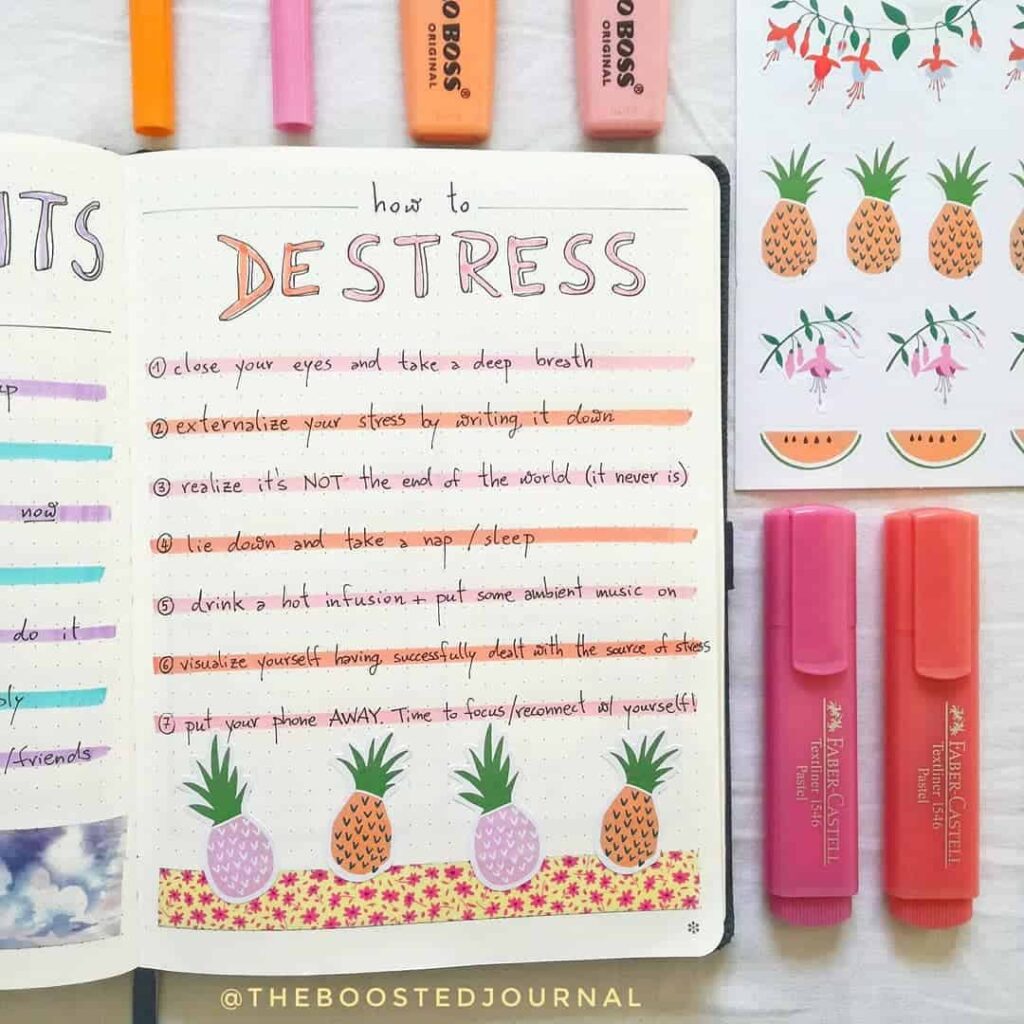 BOSS®
ORIGINAL
BOSS®
ORIGINAL
ITS
now
do it
/friends
how to
DESTRESS
① close your eyes and take a deep breath
② externalize your stress by writing it down
③ realize it's NOT the end of the world (it never is)
④ lie down and take a nap / sleep
⑤ drink a hot infusion + put some ambient music on
⑥ visualize yourself having successfully dealt with the source of stress
⑦ put your phone AWAY. Time to focus/reconnect w/ yourself!
FABER-CASTELL
Textliner 1546
Pastel
FABER-CASTELL
Textliner 1546
Pastel
@THEBOOSTEDJOURNAL